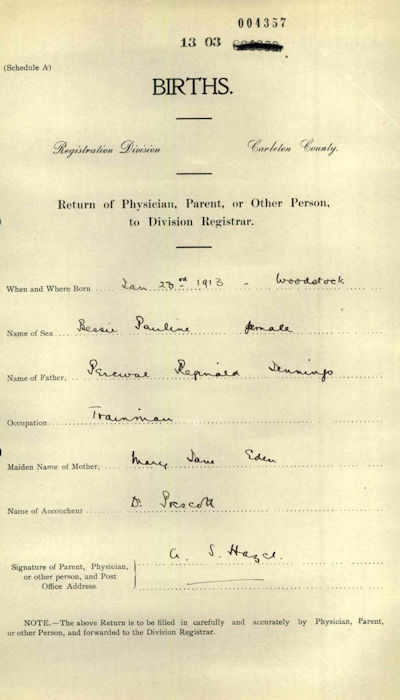 004357
13 03
(Schedule A)
BIRTHS.
Registration Division Carleton County.
Return of Physician, Parent, or Other Person,
to Division Registrar.
When and Where Born Jan 23rd 1913 - Woodstock
Name of Sex Bessie Pauline female
Name of Father, Percival Reginald Jennings
Occupation Trainman
Maiden Name of Mother, Mary Jane Eden
Name of Accoucheur Dr Prescott
G. S. Hazel.
Signature of Parent, Physician,
or other person, and Post
Office Address
NOTE.—The above Return is to be filled in carefully and accurately by Physician, Parent,
or other Person, and forwarded to the Division Registrar.